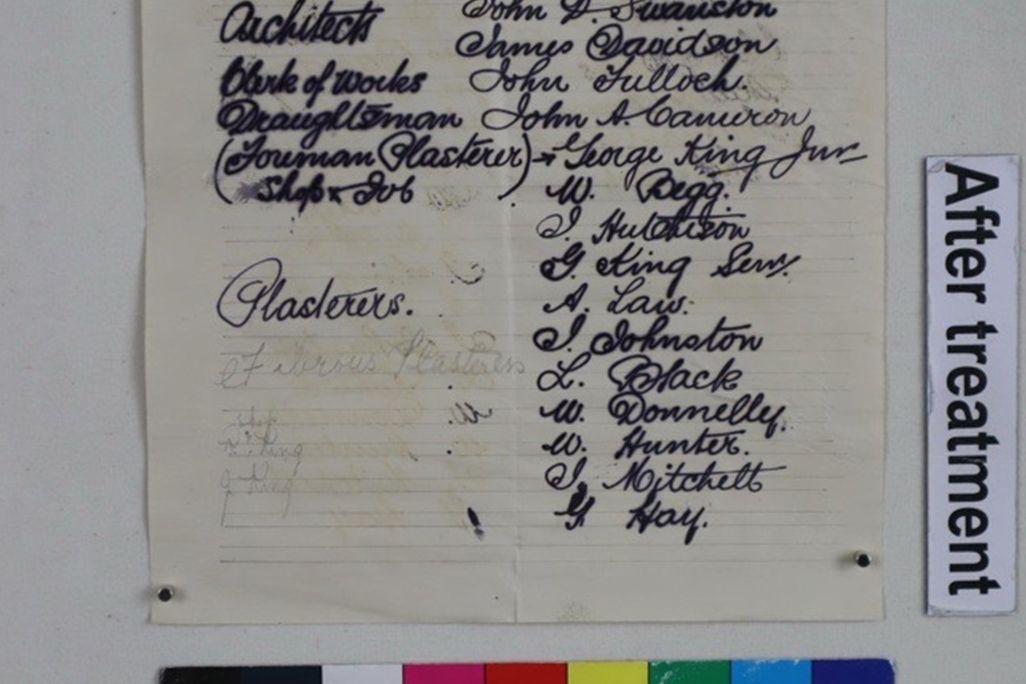 John D. Swanston
Architects
James Davidson
Clerk of Works John Tulloch.
Draughtsman John A. Cameron
(Foreman Plasterer) George King Junr
Shop & Job W. Begg.
J. Hutchison
G. King Senr.
A. Law.
Plasterers.
J. Johnston
Fibrous Plasterers
L. Black
W. Donnelly.
Shop
W. Hunter.
King
J. Mitchell
J. King
G. Hay.
After treatment